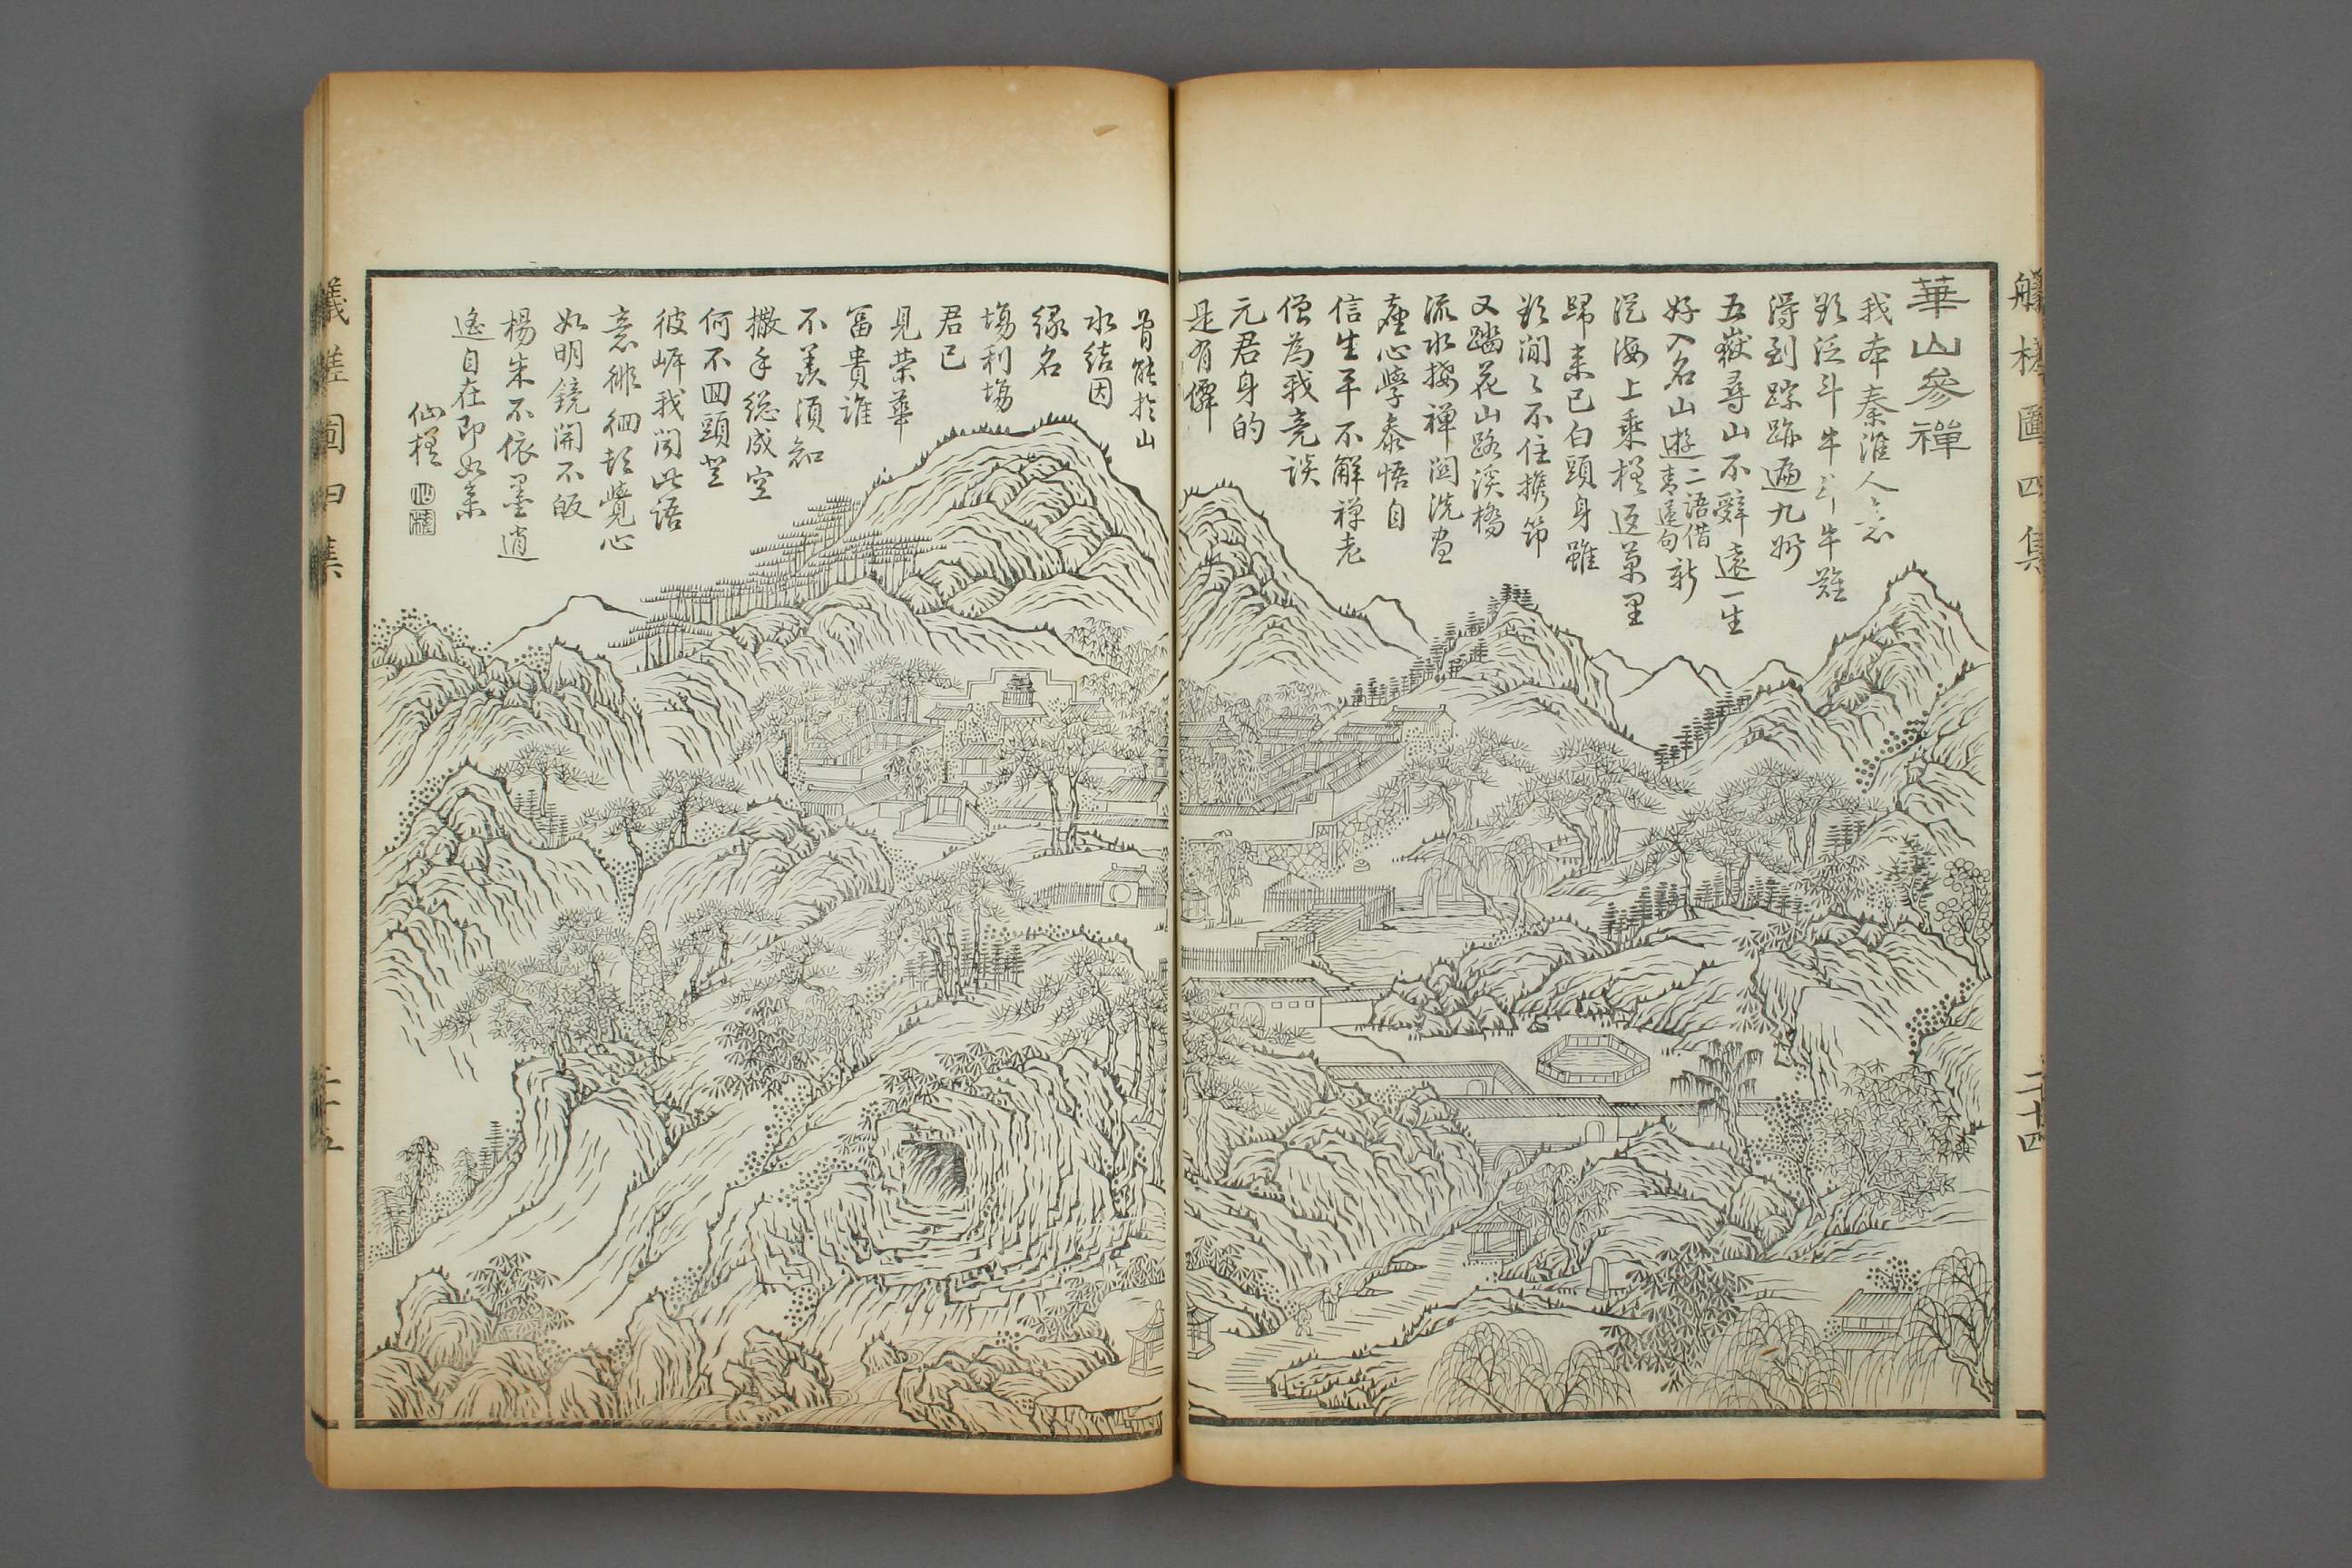 艤槎圖四集
二十四
華山參禪
我本秦淮人人忘
欲泛斗牛斗牛難
得到蹤跡遍九州
五嶽尋山不辭遠一生
好入名山遊二語借青蓮句新
從海上乘槎返萬里
歸來已白頭身雖
欲閒閒不住攜筇
又踏花山路溪橋
流水接禪關洗盡
塵心學參悟自
信生平不解禪老
僧為我竟談
元君身的
是有僊
骨能於山
水結因
緣名
場利場
君已
見榮華
富貴誰
不羨須知
撒手總成空
何不回頭登
彼岸我聞此語
意徘徊頓覺心
如明鏡開不皈
楊朱不依墨逍
遙自在即如來
仙槎
艤槎圖四集
二十五